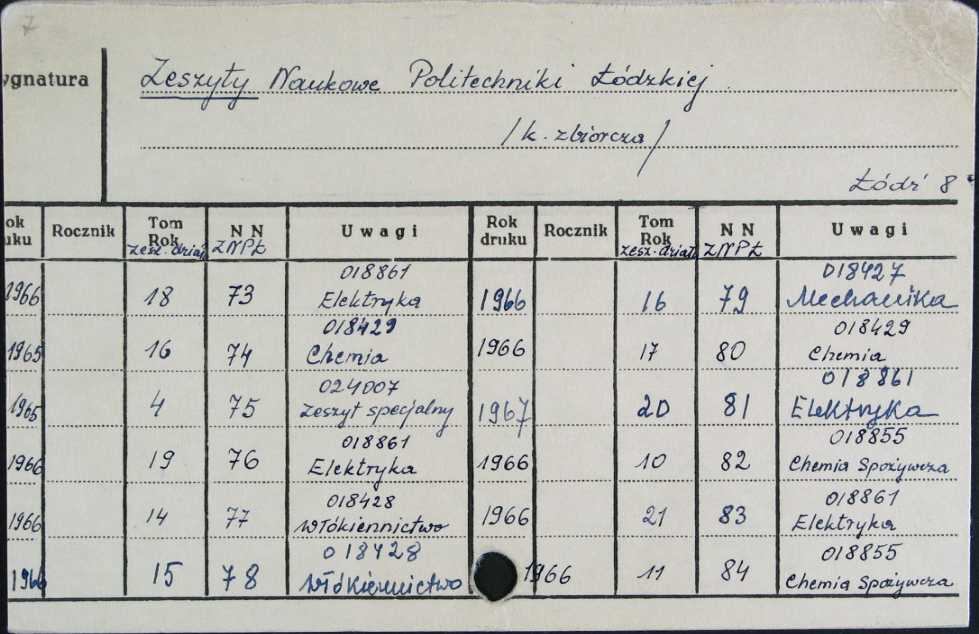 7
ygnatura
Zeszyty Naukowe Politechniki Łódzkiej.
/k. zbiorcza/
Łódź 8
ok uku Rocznik Tom Rok zesz. dział N N ZNPŁ Uwagi Rok druku Rocznik Tom Rok zesz. dział N N ZNPŁ Uwagi
1966 18 73 018861 Elektryka 1966 16 79 018427 Mechanika
1965 16 74 018429 Chemia 1966 17 80 018429 Chemia
1965 4 75 024007 Zeszyt specjalny 1967 20 81 018861 Elektryka
1966 19 76 018861 Elektryka 1966 10 82 018855 Chemia Spożywcza
1966 14 77 018428 Włókiennictwo 1966 21 83 018861 Elektryka
1966 15 78 018428 Włókiennictwo 1966 11 84 018855 Chemia Spożywcza